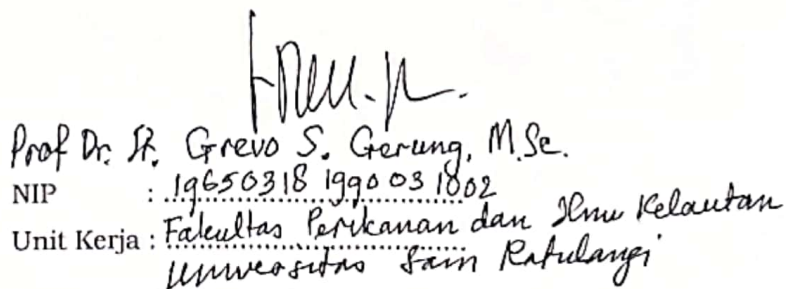 Prof Dr. Ir. Grevo S. Gerung, M.Sc.
NIP : 19650318 1990 03 1802
Unit Kerja : Fakultas Perikanan dan Ilmu Kelautan
Universitas Sam Ratulangi